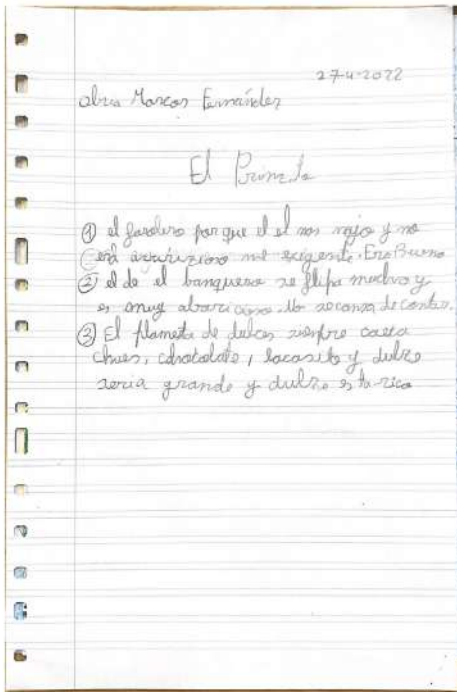 27-4-2022
Marcos Fernández
El
① el farolero porque el el mas majo y no
era ni exigente. Era Bueno
② el de el banquero se flipa mucho y
es muy abaricioso. No se cansa de contar.
③ El planeta de dulces siempre
chues, chocolate, lacasito y dulze
seria grande y dulze esta rico